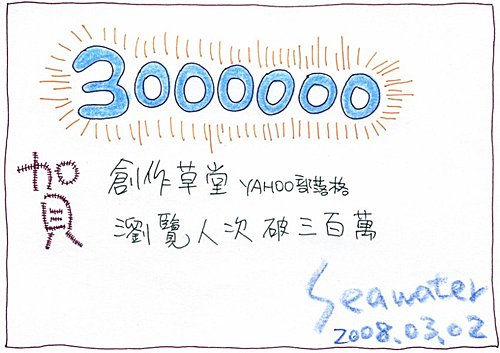 3000000
賀
創作草堂 YAHOO部落格
瀏覽人次破三百萬
Seawater
2008.03.02